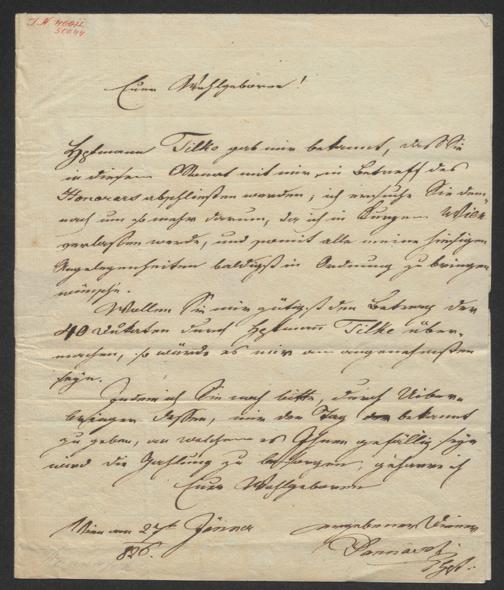 Euer Wohlgeboren!
Hptmann Tilko gab mir bekannt, daß Sie
in diesem Monat mit mir in Betreff des
Honorars abschließen werden; ich ersuche Sie dem-
nach um so mehr darum, da ich in Kurzem Wien
verlaßen werde, und somit alle meine hiesigen
Angelegenheiten baldigst in Ordnung zu bringen
wünsche.
Wollen Sie mir gütigst den Betrag der
40 Dukaten durch Hptmann Tilko über-
machen, so würde es mir am angenehmsten
seyn.
Indem ich Sie noch bitte, durch Ueber-
bringer dessen, mir den Tag bekannt
zu geben, an welchem es Ihnen gefällig seyn
wird die Zahlung zu besorgen, geharre ich
Euer Wohlgeboren
Wien am 27t Jänner
826.
ergebenster Diener